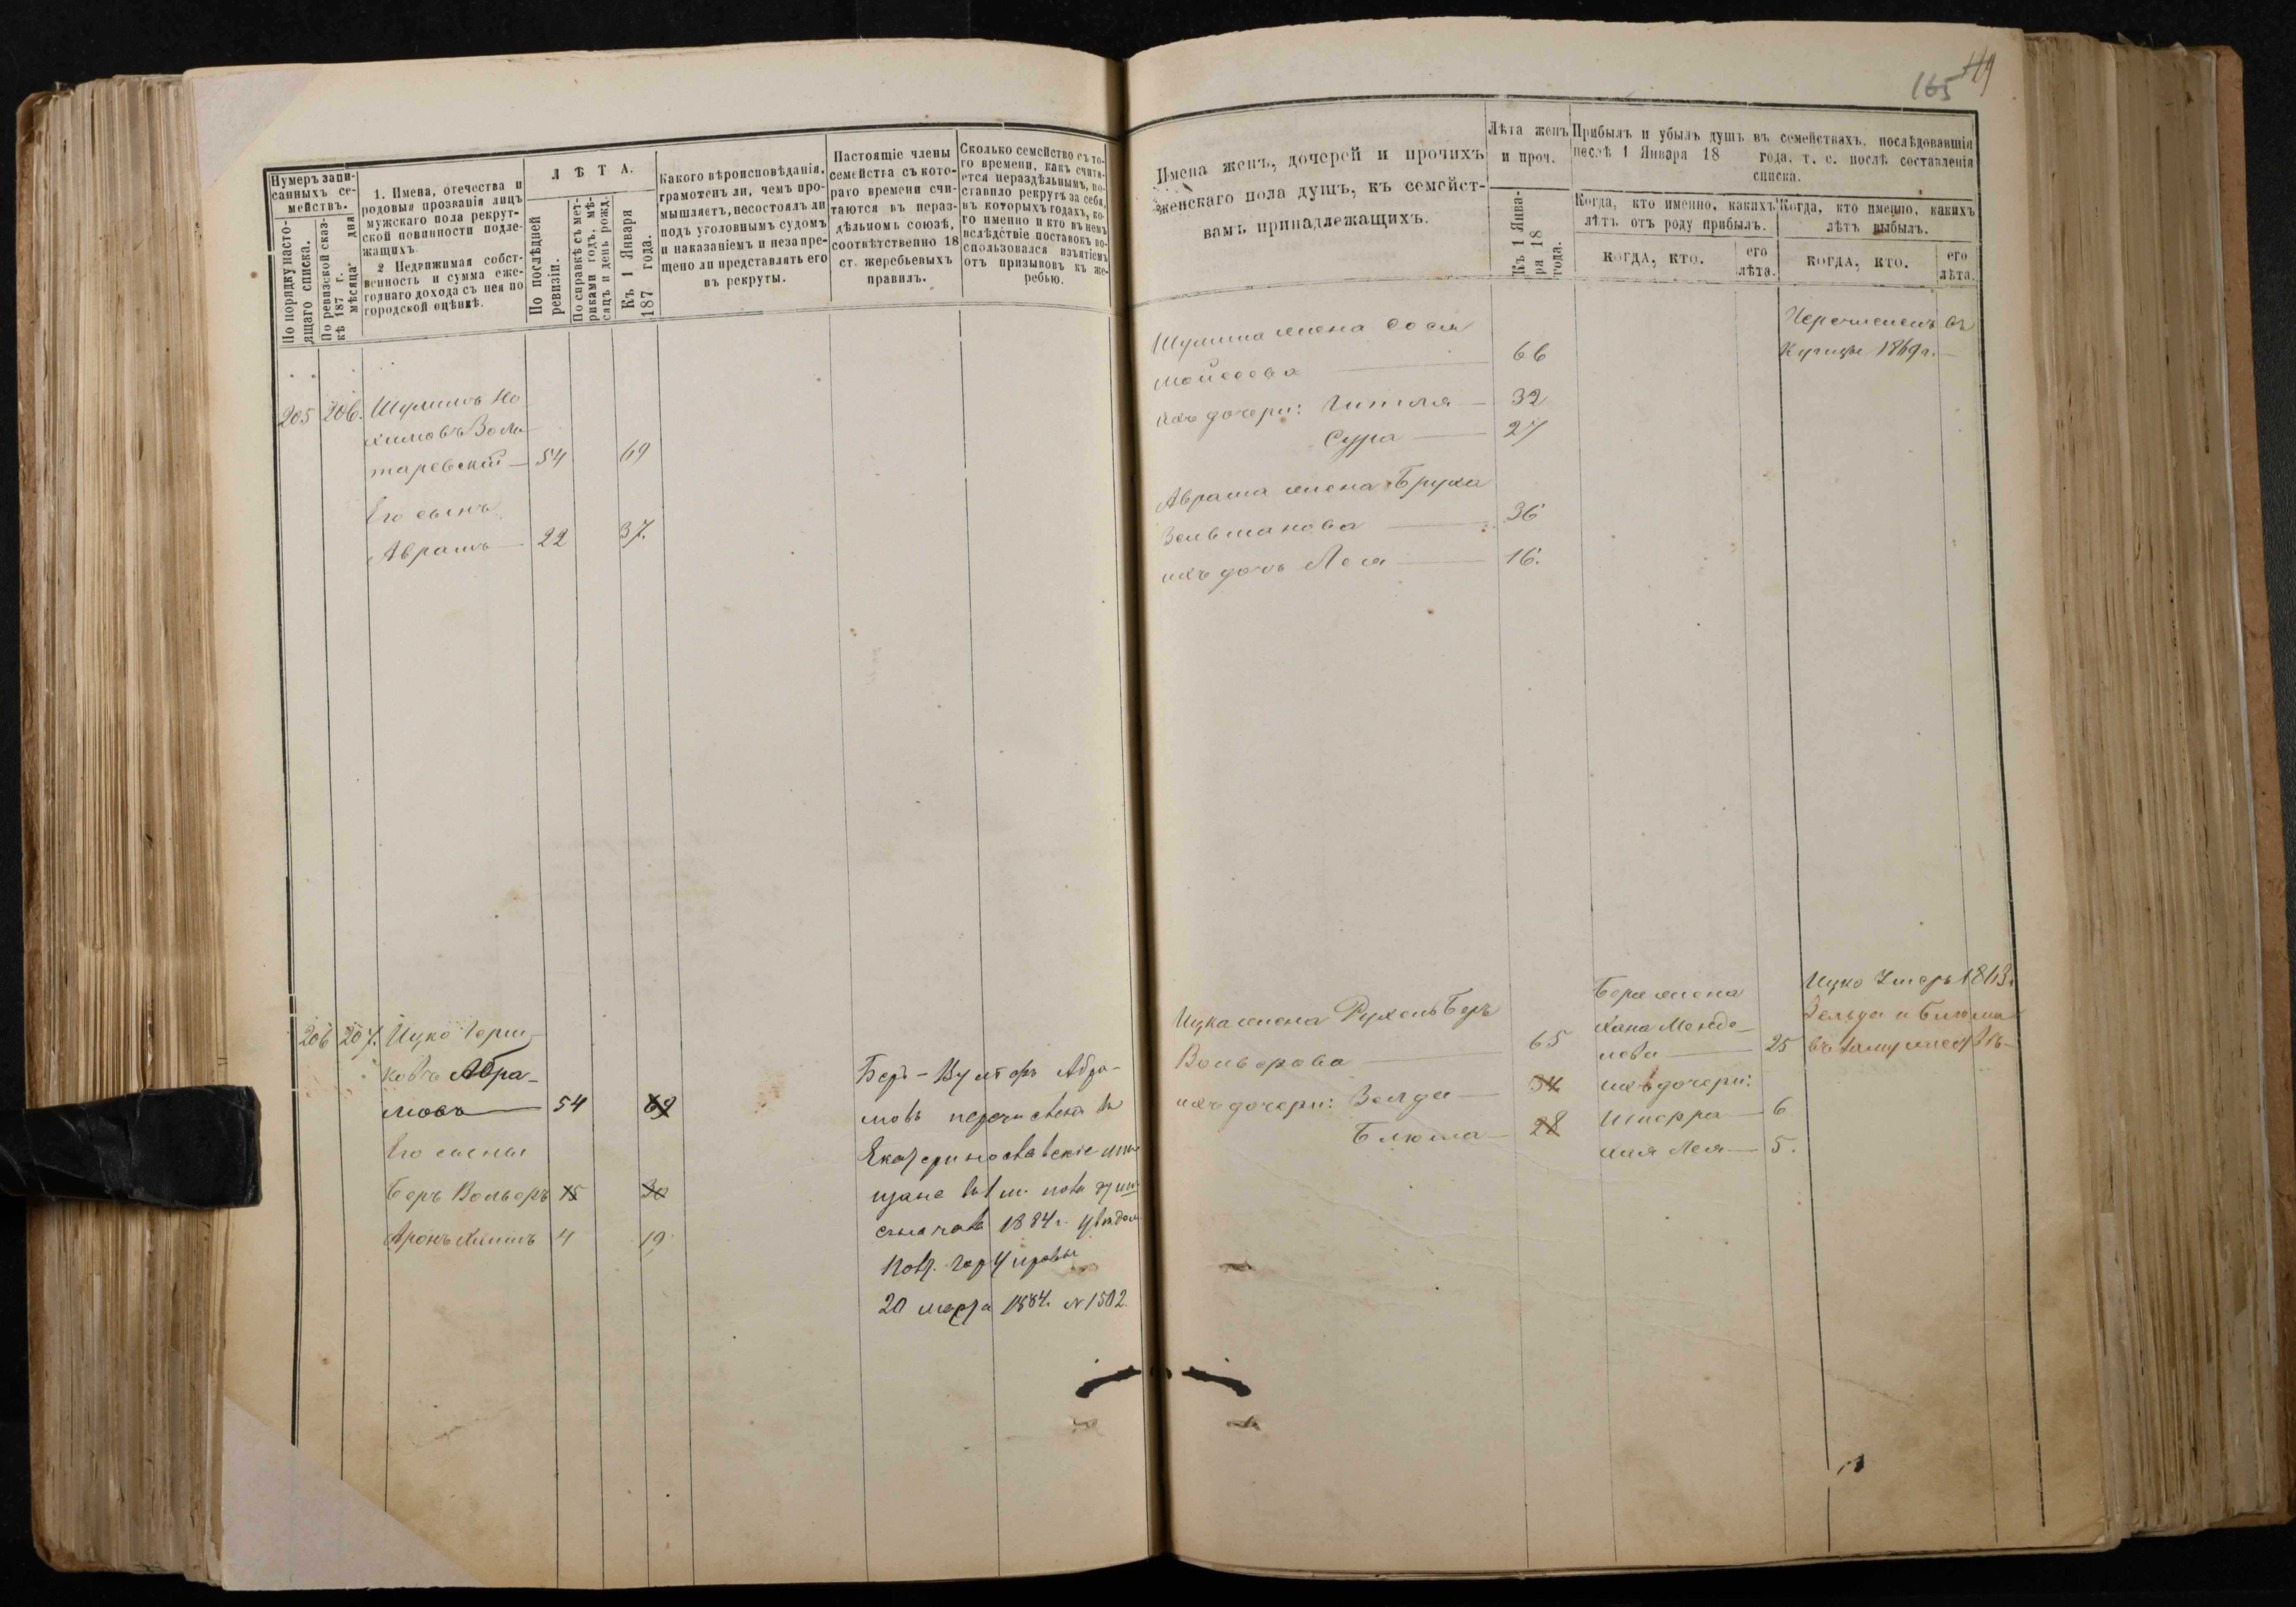 Нумеръ запи-
санныхъ се-
мействъ.
По порядку насто-
ящаго списка.
По ревизской сказ-
кѣ 187 г. дня
мѣсяца
1. Имена, отечества и
родовыя прозванія лицъ
мужскаго пола рекрут-
ской повинности подле-
жащихъ.
2 Недвижимая собст-
венность и сумма еже-
годнаго дохода съ нея по
городской оцѣнкѣ.
ЛѢТА.
По послѣдней
ревизіи.
По справкѣ съ мет-
риками годъ, мѣ-
сяцъ и день рожд.
Къ 1 Января
187 года.
Какого вѣроисповѣданія,
грамотенъ ли, чемъ про-
мышляетъ, несостоялъ ли
подъ уголовнымъ судомъ
и наказаніемъ и неза пре-
щено ли представлять его
въ рекруты.
Настоящіе члены
семейства съ кото-
раго времени счи-
таются въ нераз-
дѣльномъ союзѣ,
соотвѣтственно 18
ст. жеребьевыхъ
правилъ.
Сколько семейство съ то-
го времени, какъ счита-
ется нераздѣльнымъ, по-
ставило рекрутъ за себя,
въ которыхъ годахъ, ко-
го именно и кто въ немъ
вслѣдствіе поставокъ во-
спользовался изъятіемъ
отъ призывовъ къ же-
ребью.
205 206. Шулимъ Но
химовъ Воли-
таревскій 54 69
Его сынъ
Аврамъ 22 37.
206 207. Ицко Герш-
ковъ Абра-
мовъ 54 69
Его сыны
Беръ Вольфъ 15 30
Аронъ Хаимъ 4 19
Беръ-Вульфъ Абра-
мовъ перечисленъ въ
Екатеринославскіе мѣ-
щане
1884 г.
20 марта 1884. N 1502.
165 119
Имена женъ, дочерей и прочихъ
женскаго пола душъ, къ семейст-
вамъ принадлежащихъ.
Лѣта женъ
и проч.
Къ 1 Янва-
ря 18
года.
Прибылъ и убылъ душъ въ семействахъ, послѣдовавшія
послѣ 1 Января 18 года. т. е. послѣ составленія
списка.
Когда, кто именно, какихъ
лѣтъ отъ роду прибылъ.
КОГДА, КТО.
его
лѣта.
Когда, кто именно, какихъ
лѣтъ выбылъ.
КОГДА, КТО.
его
лѣта.
Шулима жена Сося
Мойсеева 66
ихъ дочери: Гитля 32
Сура 27
Аврама жена Бруха
Зельманова 36
ихъ дочь Лея 16.
Перечисленъ въ
Купцы 1869 г.
Ицка жена Рухель Беръ
Вольфова 65
ихъ дочери: Зелда 34
Блюма 28
Бера жена
Хана Менде-
лева 25
ихъ дочери:
Шифра 6
Хая Лея 5.
Ицко Умеръ
Зельда и Блюма
въ замужествѣ